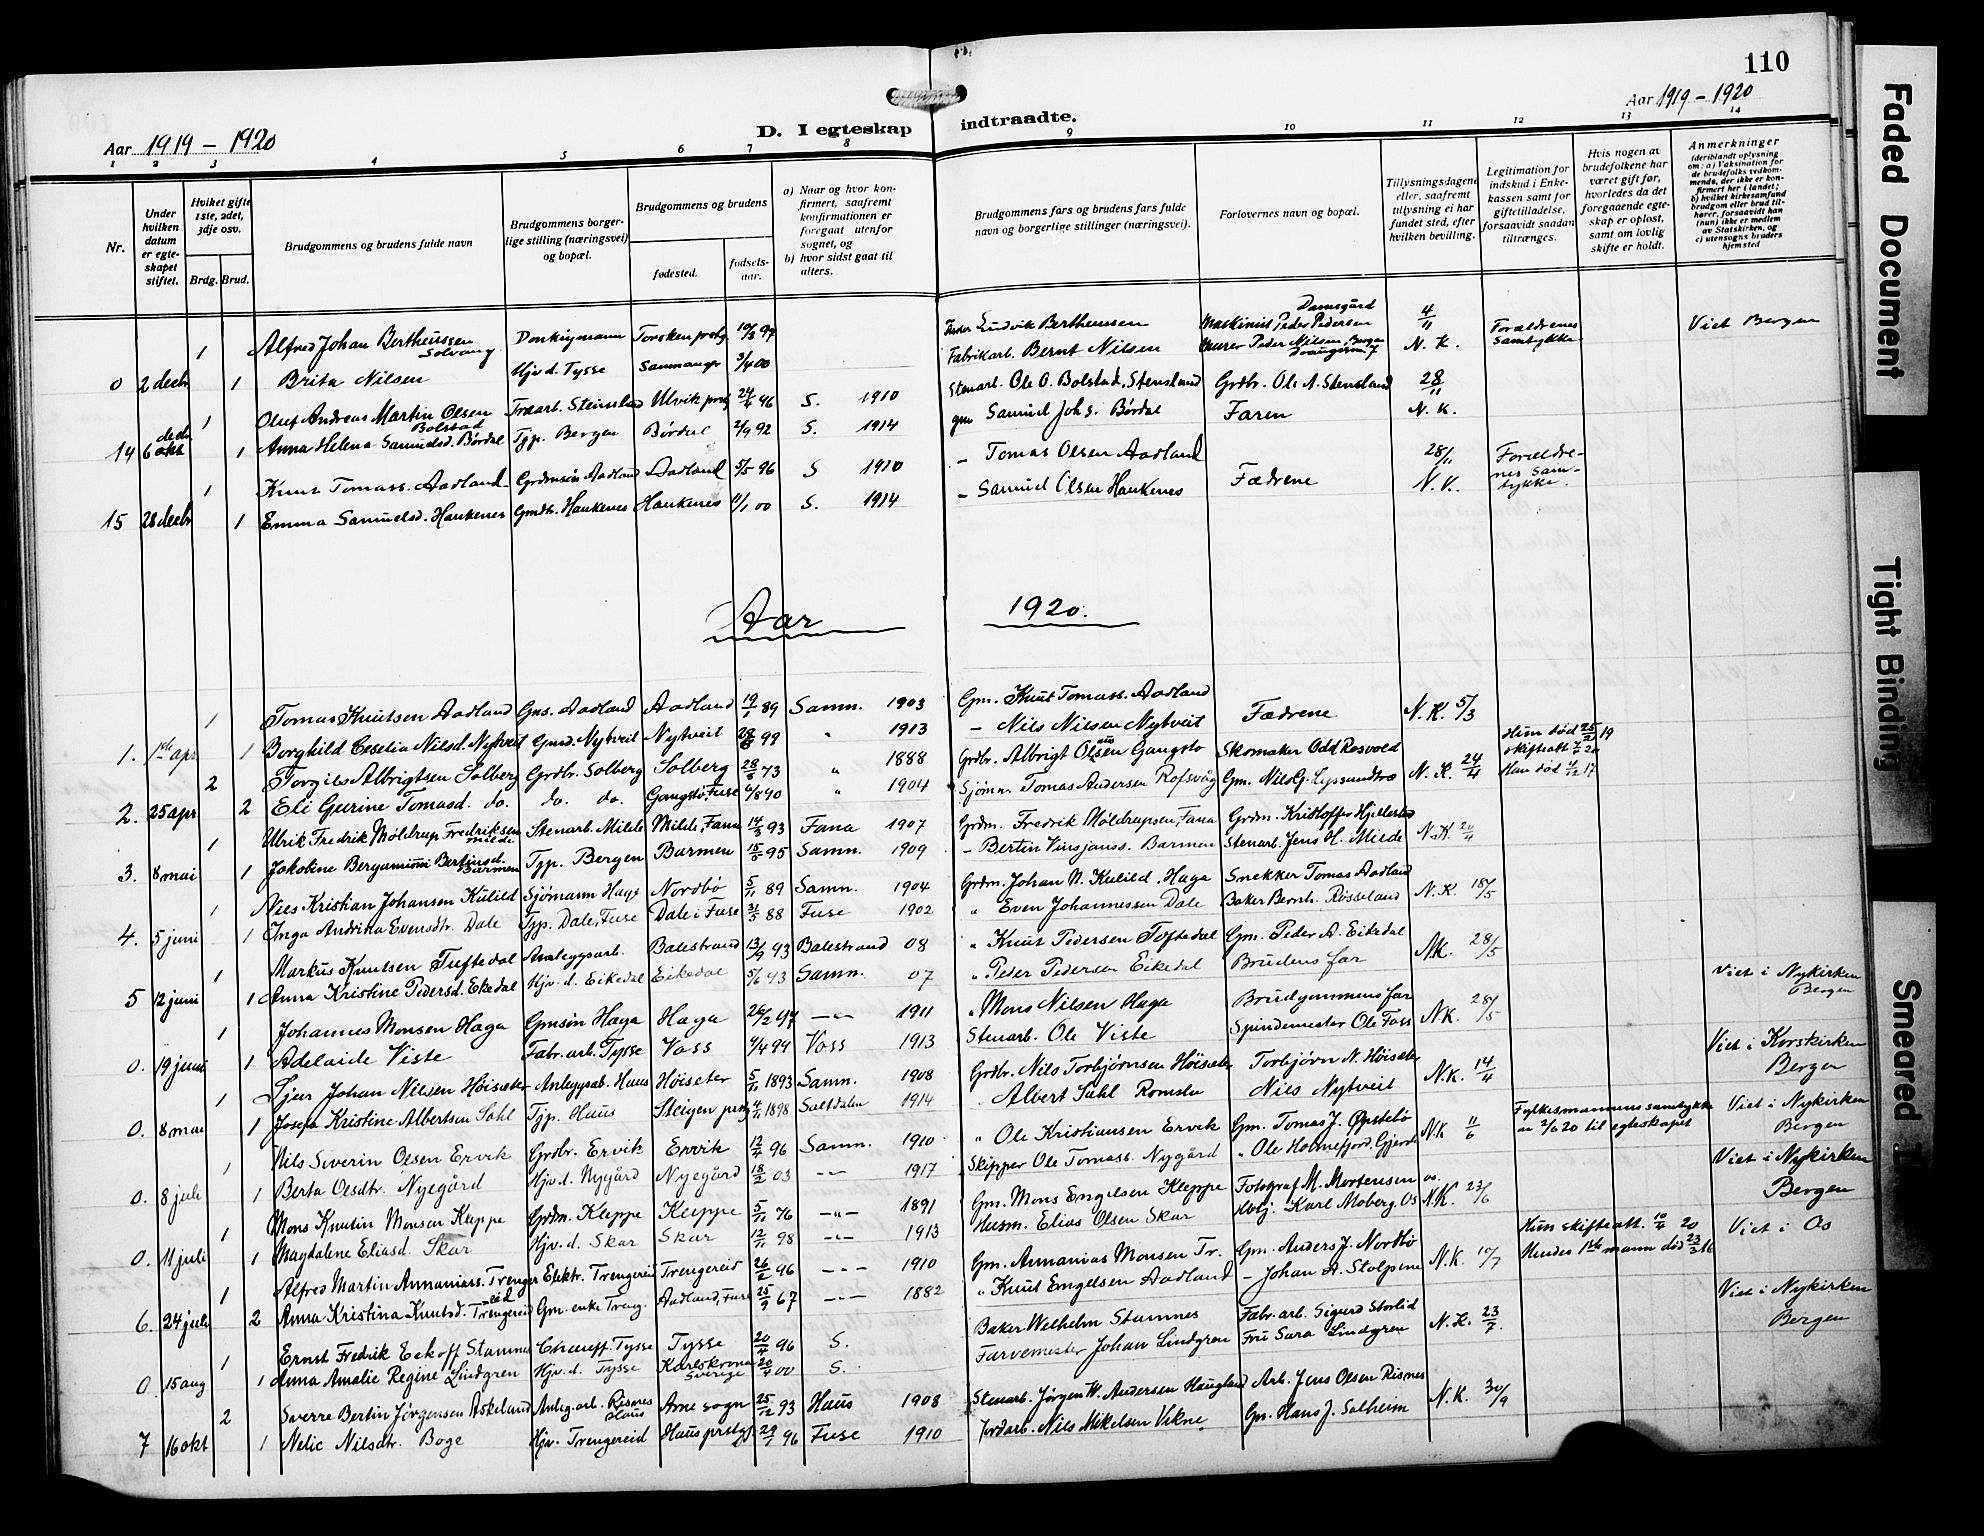 110
Aar 1919 - 1920
D. I egteskap indtraadte.
Aar 1919 - 1920
1 2 3 4 5 6 7 8 9 10 11 12 13 14
Nr.
Under hvilken datum er egteskapet stiftet.
Hvilket gifte 1ste, 2det, 3dje osv.
Brdg. Brud.
Brudgommens og brudens fulde navn
Brudgommens borgerlige stilling (næringsvei) og bopæl.
Brudgommens og brudens
fødested.
fødselsaar.
a) Naar og hvor konfirmert, saafremt konfirmationen er foregaat utenfor sognet, og
b) hvor sidst gaat til alters.
Brudgommens fars og brudens fars fulde navn og borgerlige stillinger (næringsvei).
Forlovernes navn og bopæl.
Tillysningsdagene eller, saafremt tillysning ei har fundet sted, efter hvilken bevilling.
Legitimation for indskud i Enkekassen samt for giftetilladelse, forsaavidt saadan tiltrænges.
Hvis nogen av brudefolkene har været gift før, hvorledes da det foregaaende egteskap er opløst, samt om lovlig skifte er holdt.
Anmerkninger
(deriblandt oplysning om: a) Vaksination for de brudefolks vedkommende, der ikke er konfirmert her i landet; b) hvilket kirkesamfund brudgom eller brud tilhører, forsaavidt han (hun) ikke er medlem av Statskirken, og c) utensogns bruders hjemsted
1 Alfred Johan Bertheussen Solvang Donkeymann Torsken prstg 10/3 97 Ludvik Bertheussen Maskinist Peder Pedersen Damsgård 4/11 Forældrenes Viet Bergen
0 2 decbr 1 Brita Nilsen Hjv. d. Tysse Samnanger 3/4 00 Fabrikarb. Bernt Nilsen Murer Peder Nilsen, Bergen N. K. samtykke
1 Oluf Andreas Martin Olsen Bolstad Træarb. Steinsland Ulvik prstg 24/4 96 S. 1910 Stenarb. Ole O. Bolstad, Stensland Grdbr. Ole A. Stensland 28/11
14 6 decbr 1 Anna Helena Samuelsd. Børdal Tjp. Bergen Børdal 2/9 92 S. 1914 Gm Samuel Johs. Børdal Faren N. K.
1 Knut Tomass. Aadland Grdmsøn Aadland Aadland 5/5 96 S 1910 - Tomas Olsen Aadland 28/11 Foreldre-
15 28 decbr 1 Emma Samuelsd. Haukenes Gmdtr. Haukenes Haukenes 11/1 00 S. 1914 - Samuel Olsen Haukenes Fædrene N. K. nes samtykke.
Aar 1920.
1 Tomas Knutsen Aadland Gms. Aadland Aadland 19/1 89 Samn. 1903 Gm. Knut Tomass. Aadland Fædrene N. K. 5/3
1. 1ste apr. 1 Borghild Ceselia Nilsd. Nytveit Gmd. Nytveit Nytveit 28/8 99 " 1913 - Nils Nilsen Nytveit
2 Torgils Albrigtsen Solberg Grdbr. Solberg Solberg 28/5 73 " 1888 Grdbr. Albrigt Olsen Gangstø Skomaker Odd Rosvold N. K. 24/4 Hun død 25/2 19 skifteatt 7/4 20
2. 25 apr 2 Eli Gurine Tomasd. do. do. do. Gangstø, Fuse 6/8 90 " 1904 Sjøm. Tomas Andersen Rofsvåg Gm. Nils G. Lyssundtræ Han død 4/12 17
1 Ulrik Fredrik Møldrup Fredriksen Milde Stenarb. Milde Milde, Fana 14/3 93 Fana 1907 Grdm. Fredrik Møldrupsen, Fana Grdm. Kristoffer Hjellestad N. K. 20/4
3. 8 mai 1 Jakobine Bergamimi Bertinsd. Barmen Tjp. Bergen Barmen 15/5 95 Samn. 1909 - Bertin Vinsjanss. Barmen Stenarb. Jens H. Milde
1 Nils Kristian Johansen Kulild Sjømann Haga Nordbø 5/11 89 Samn. 1904 Grdm. Johan N. Kulild. Haga Snekker Tomas Aadland N. K. 18/5
4. 5 juni 1 Inga Andrina Evensdtr. Dale Tjp. Dale, Fuse Dale i Fuse 31/5 88 Fuse 1902 " Even Johannessen Dale Baker Bernh. Røsseland
1 Markus Knutsen Tuftedal Anleggsarb. Balestrand 13/9 93 Balestrand 08 " Knut Pedersen Toftedal Gm. Peder A. Eikedal N. K. 28/5
5 12 juni 1 Anna Kristine Pedersd. Ekedal Hjv. d. Eikedal Eikedal 5/6 93 Samn. 07 " Peder Pedersen Eikedal Brudens far
1 Johannes Monsen Haga Gmsøn Haga Haga 26/2 97 -"- 1911 " Mons Nilsen Haga Brudgommens far N. K. 28/5 Viet i Nykirken Bergen
0. 19 juni 1 Adelaide Viste Fabr. arb. Tysse Voss 9/4 99 Voss 1913 Stenarb. Ole Viste Spindemester Ole Foss
1 Sjur Johan Nilsen Høisæter Anleggsab. Haus Høiseter 5/11 1893 Samn. 1908 Grdbr. Nils Torbjørnsen Høisæter Torbjørn N. Høisæter N. K. 14/4 Viet i Korskirken Bergen
0. 8 mai 1 Josefa Kristine Albertsen Sahl Tjp. Haus Steigen prstg 4/11 1898 Saltdalen 1914 Albert Sahl Romsla Nils Nytveit
1 Nils Severin Olsen Ervik Grdbr. Ervik Ervik 12/4 96 Samn. 1910 " Ole Kristiansen Ervik Gm. Tomas J. Øpstebø N. K. 11/6 Fylkesmannens samtykke av 2/6 20 til egteskapet Viet i Nykirken Bergen
0. 8 juli 1 Berta Olsdtr. Nyegård Hjv. d. Nygård Nyegård 18/2 03 -"- 1917 Skipper Ole Tomass. Nygård " Ole Holmefjord. Gjerde
1 Mons Knutin Monsen Kleppe Grdm. Kleppe Kleppe 5/11 76 -"- 1891 Gm. Mons Engelsen Kleppe Fotograf M. Mortensen os. N. K. 23/6 Viet i Nykirken Bergen
0. 11 juli 1 Magdalene Eliasd. Skar Hjv. d. Skar Skar 12/11 98 -"- 1913 Husm. Elias Olsen Skar Karl Moberg. Os
1 Alfred Martin Annaniass. Trengereid Elektr. Trengereid Trengereid 26/2 96 -"- 1910 Gm. Annanias Monsen Tr. Gm. Anders J. Nordbø N. K. 10/7 Hun skifteatt. 10/4 20 Viet i Os
6. 24 juli 2 Anna Kristina Knutsd. Trengereid Gm. enke Treng. Aadland, Fuse 25/9 67 -"- 1882 " Knut Engelsen Aadland - Johan A. Stolpen Hendes 1ste mann død 23/3 16
1 Ernst Fredrik Eckoff Stamnes Chauff. Tysse Tysse 20/4 96 S. Baker Welhelm Stamnes Fabr. arb. Sigurd Storlid N. K. 23/7. Viet i Nykirken Bergen
0. 15 aug 1 Anna Amalie Regine Lindgren Hjv. d. Tysse Karlskrona Sverige 20/4 00 S. Farvemester Johan Lindgren Fru Sara Lindgren
2 Sverre Bertin Jørgensen Askeland Anleg. arb. Risnes Haus Arne sogn 25/12 93 Haus 1908 Stenarb. Jørgen W. Andersen Haugland Arb. Jens Olsen Risnes N. K. 30/9
7 16 okt 1 Nelie Nilsdtr. Boge Hjv. Trengereid Haus prstgj 29/1 96 Fuse 1910 Jordarb. Nils Mikelsen Vikne Gm. Hans J. Solheim
Faded Document
Tight Binding
Smeared